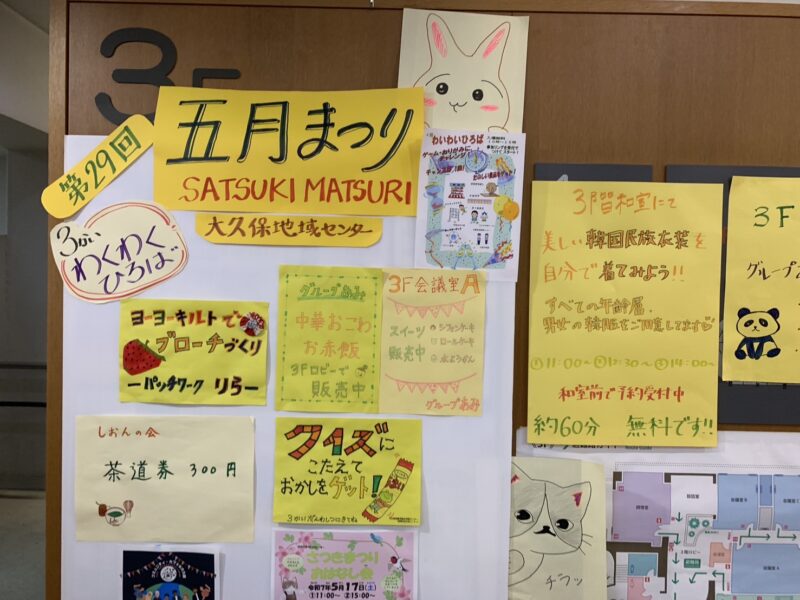 3F
第29回
五月まつり
SATSUKI MATSURI
大久保地域センター
3かい
わくわく
ひろば
わいわいひろば
ゲーム・おりがみに
チャレンジ!
ヨーヨーキルトで
ブローチづくり
ーパッチワーク りらー
グループあみ
中華おこわ
お赤飯
3Fロビーで
販売中
3F会議室A
スイーツ
販売中
シフォンケーキ
ロールケーキ
水ようかん
グループあみ
しおんの会
茶道券 300円
クイズに
こたえて
おかしを
ゲット!
3がいだんわしつにきてね
さつきまつり
おはなし会
令和7年5月17日(土)
①11:00~ ②15:00~
3階和室にて
美しい韓国民族衣装を
自分で着てみよう!!
すべての年齢層、
男女の韓服をご用意してます♡
①11:00~ ②12:30~ ③14:00~
和室前で予約受付中
約60分 無料です!!
3F
チラッ